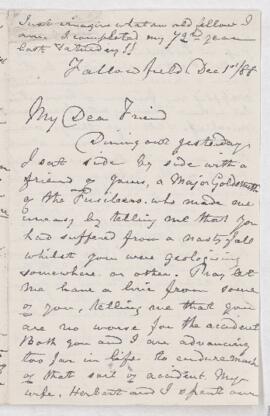 Just imagine what an old fellow I
am. I completed my 72nd year
last Saturday!!
Fallowfield Dec 1st/88
My Dear Friend
Dining out yesterday
I sat side by side with a
friend of yours, a Major Goldsmith
of the Fusileers. who made me
uneasy by telling me that you
had suffered from a nasty fall
whilst you were geologising
somewhere or other. Pray let
me have a line from some
of you, telling me that you
are no worse for the accident
Both you and I are advancing
too far in life to endure much
of that sort of accident. My
wife, Herbert and I spent our